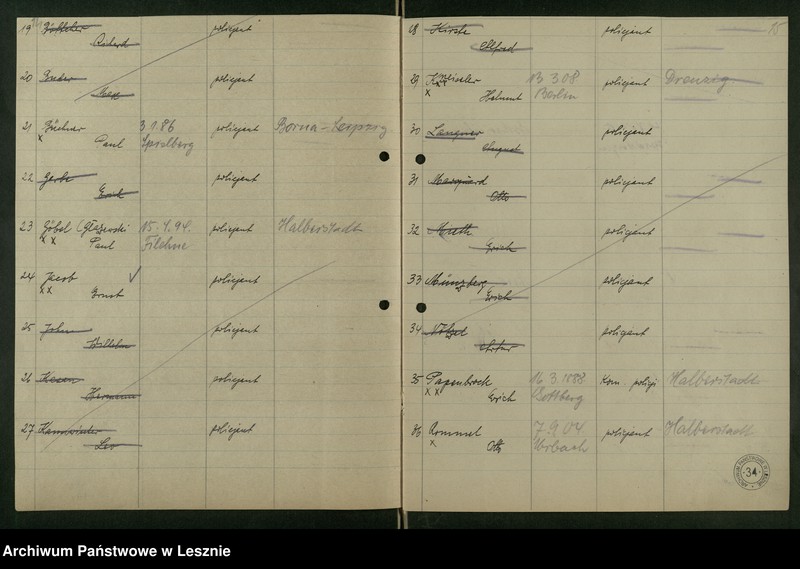 19 policjant
Richard
20 policjant
Max
21 Büchner 3.1.86 policjant Borna-Leipzig
x Paul Spralberg
22 Gerbe policjant
Erich
23 Göbel (Głazewski 15.4.94. policjant Halberstadt
x x Paul Filehne
24 Jacob policjant
x x Ernst
25 John policjant
Wilhelm
26 policjant
Hermann
27 policjant
Leo
28 Kirste policjant
Alfred
29 13 3.08 policjant Drenzig
x Helmut Berlin
30 Langner policjant
August
31 Marquard policjant
Otto
32 policjant
Erich
33 Münzberg policjant
Erich
34 policjant
Artur
35 Papenbrock 16.3.1888 Kom. policji Halberstadt
x x Erich Bottberg
36 Rommel 7.9.04 policjant Halberstadt
x Otto Urbach
ARCHIWUM PAŃSTWOWE W LESZNIE
34
Archiwum Państwowe w Lesznie